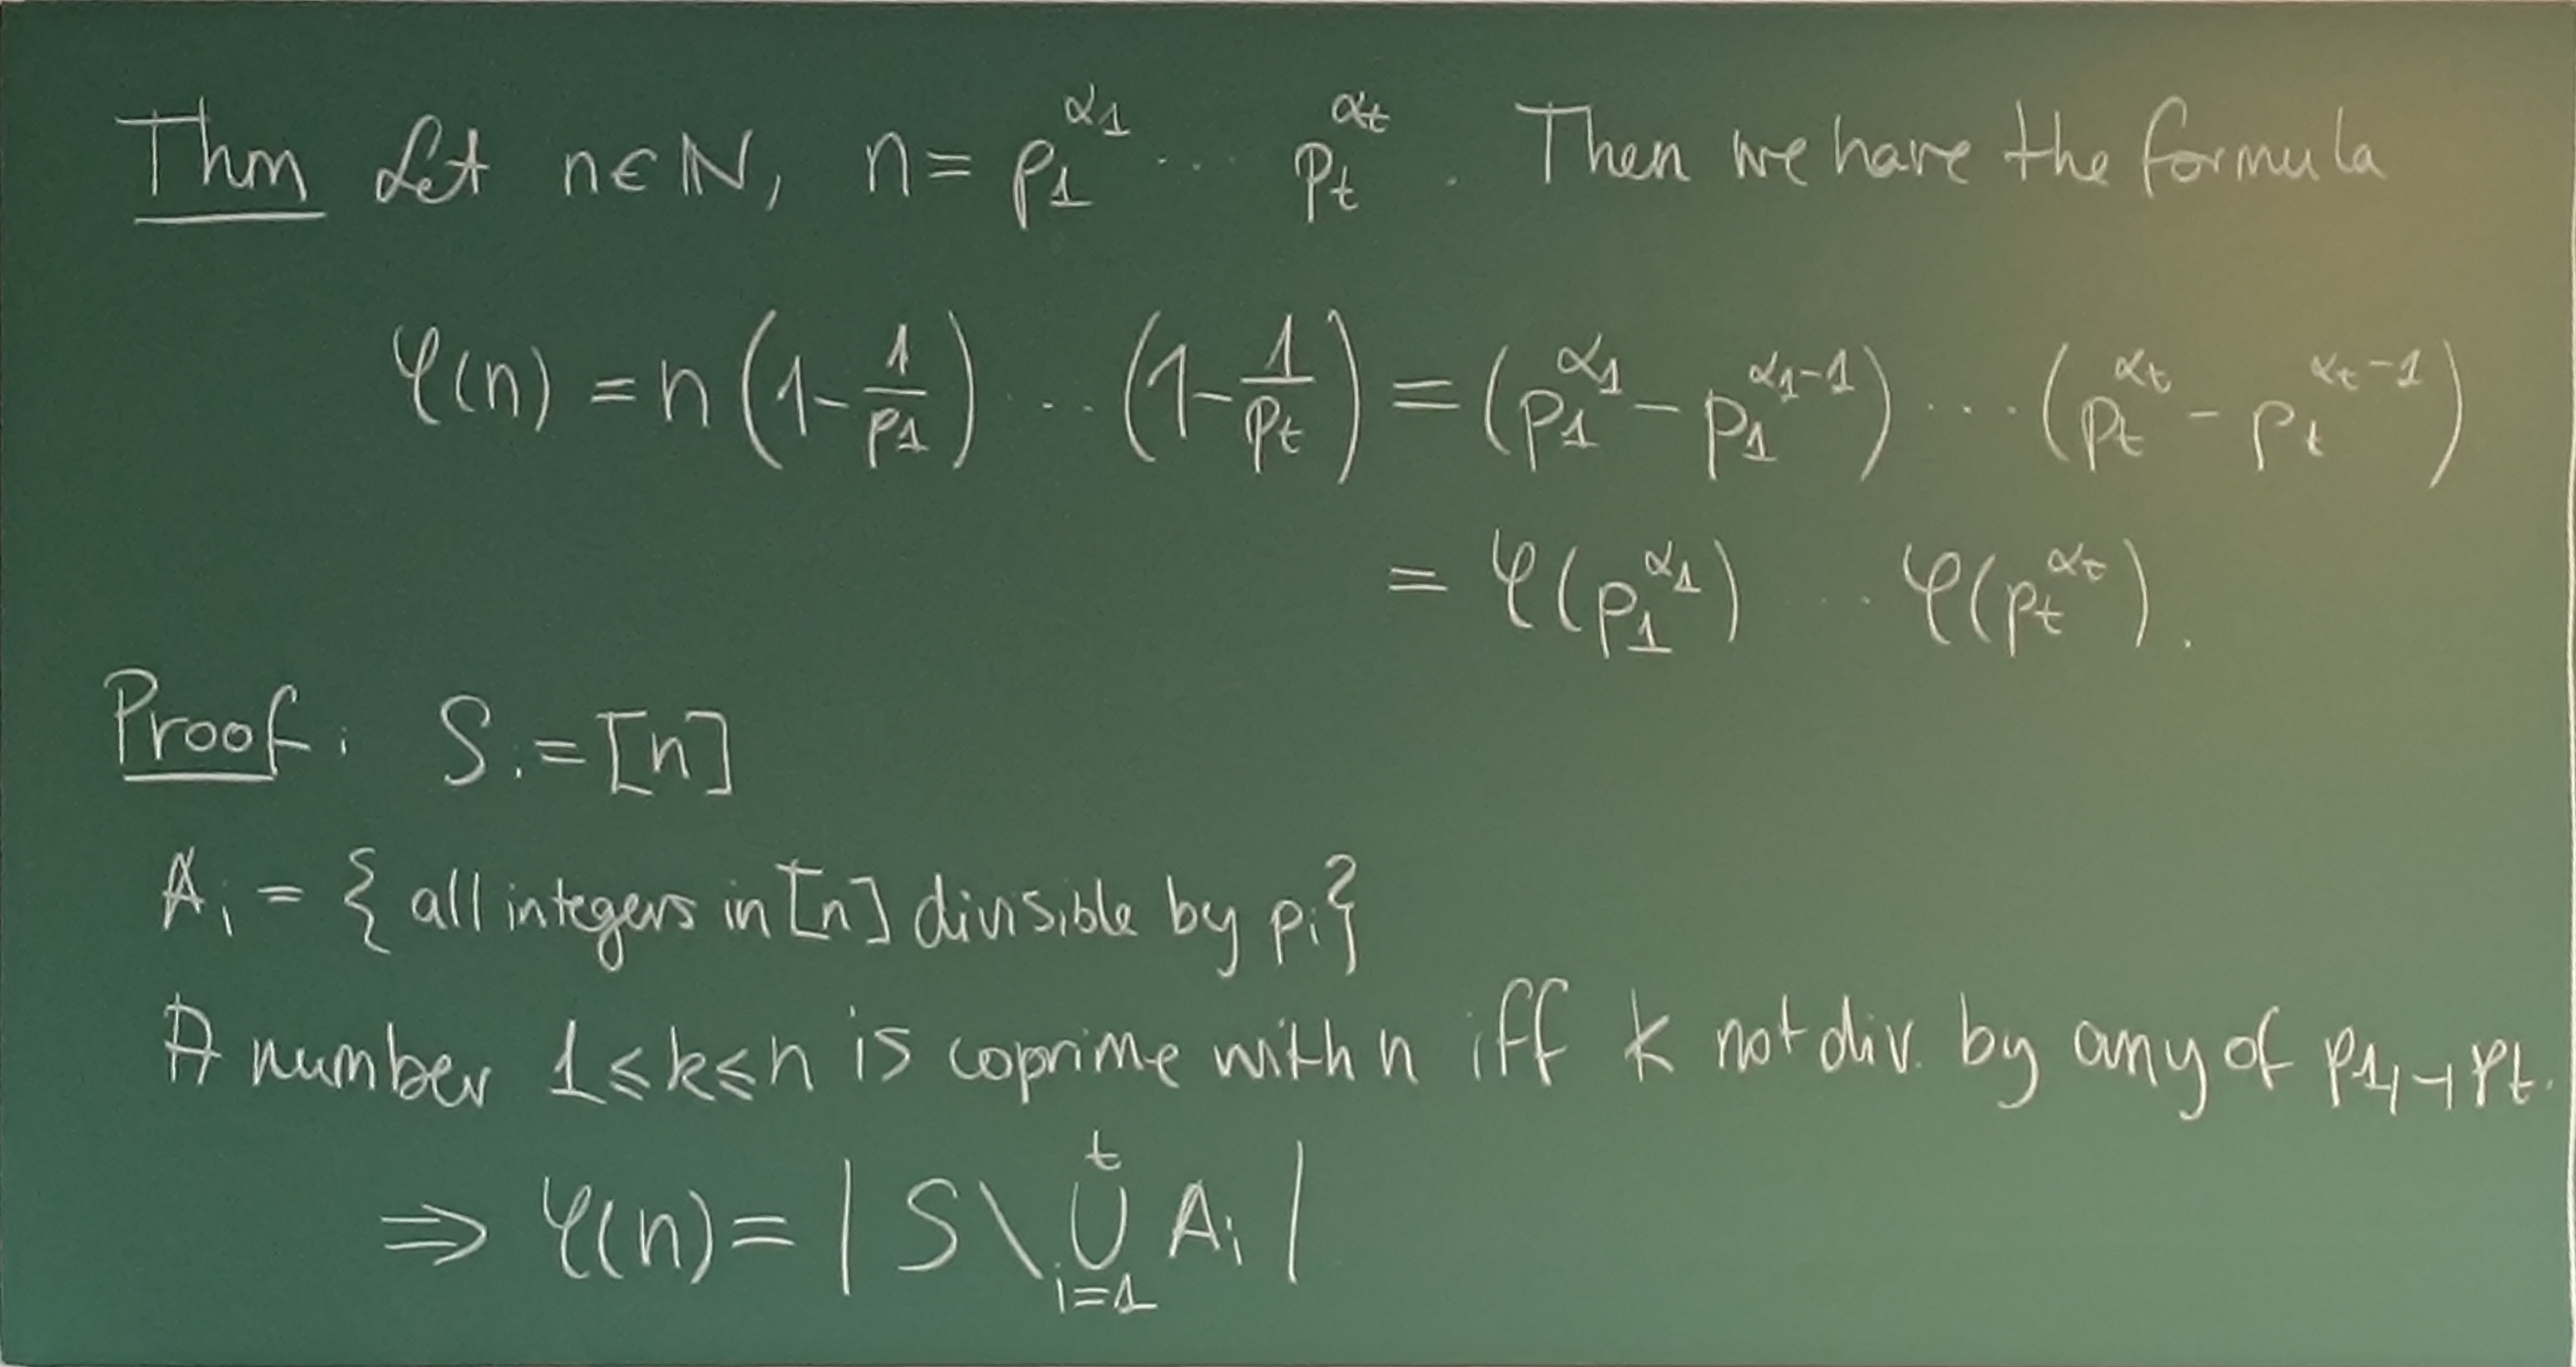 Thm Let n∈ℕ, n = p₁^α₁ ... pₜ^αₜ. Then we have the formula
φ(n) = n(1 - 1/p₁) ... (1 - 1/pₜ) = (p₁^α₁ - p₁^(α₁-1)) ... (pₜ^αₜ - pₜ^(αₜ-1))
= φ(p₁^α₁) ... φ(pₜ^αₜ).
Proof: S := [n]
Aᵢ = { all integers in [n] divisible by pᵢ}
A number 1 ⩽ k ⩽ n is coprime with n iff k not div. by any of p₁,-,pₜ.
⇒ φ(n) = | S \ ⋃_{i=1}^{t} Aᵢ |